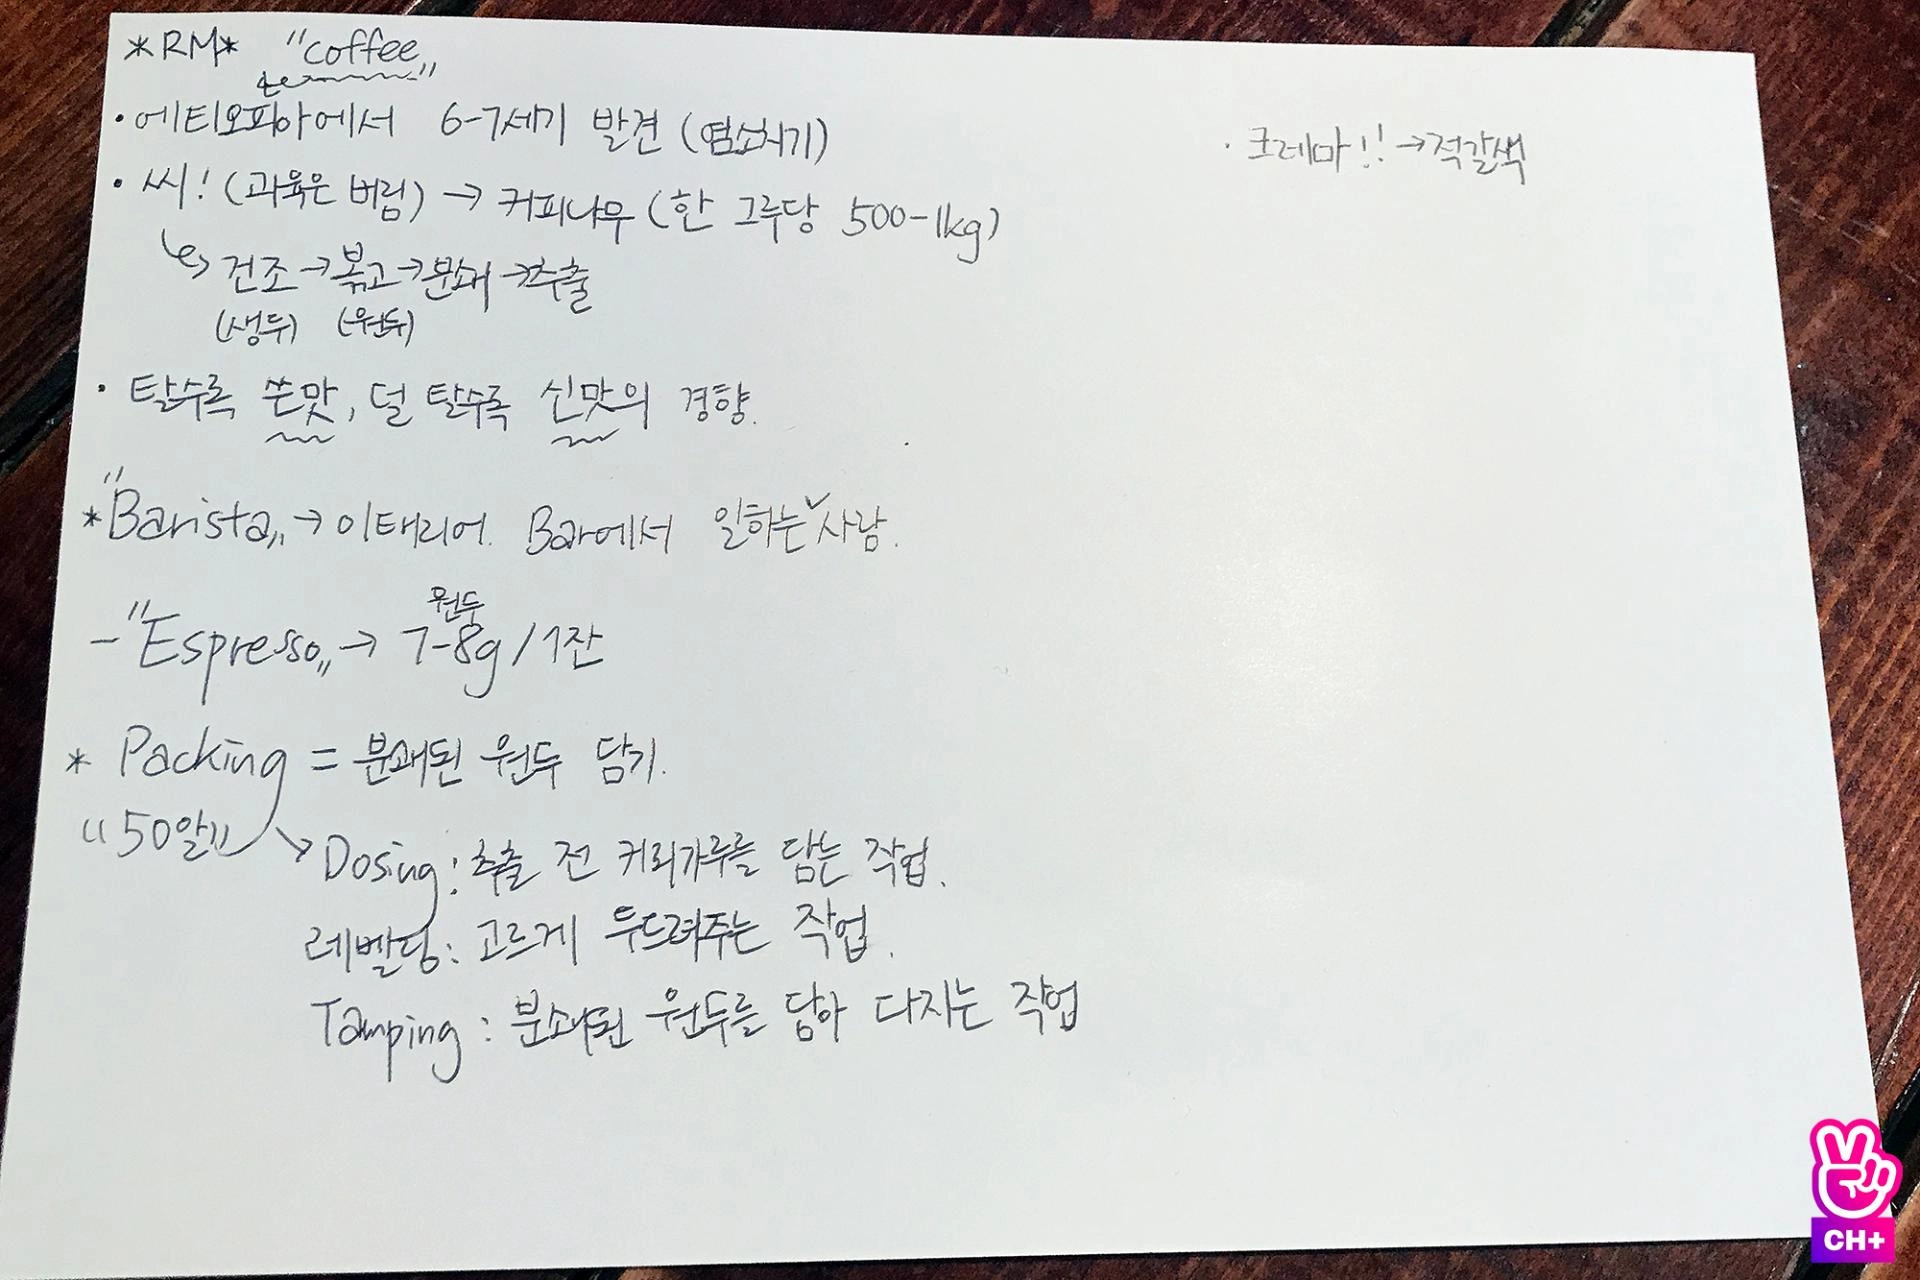 *RM* "coffee„
· 에티오피아에서 6-7세기 발견 (염소치기)
· 씨! (과육은 버림) → 커피나무 (한 그루당 500-1kg)
↳ 건조 → 볶고 → 분쇄 → 추출
(생두) (원두)
· 탈수록 쓴맛, 덜 탈수록 신맛의 경향.
* "Barista„ → 이태리어. Bar에서 일하는 ∨ 사람.
원두
- "Espresso„ → 7-8g / 1잔
* Packing = 분쇄된 원두 담기.
"50알"
→ Dosing : 추출 전 커피가루를 담는 작업.
레벨링 : 고르게 두드려주는 작업.
Tamping : 분쇄된 원두를 담아 다지는 작업
· 크레마!! → 적갈색
CH+